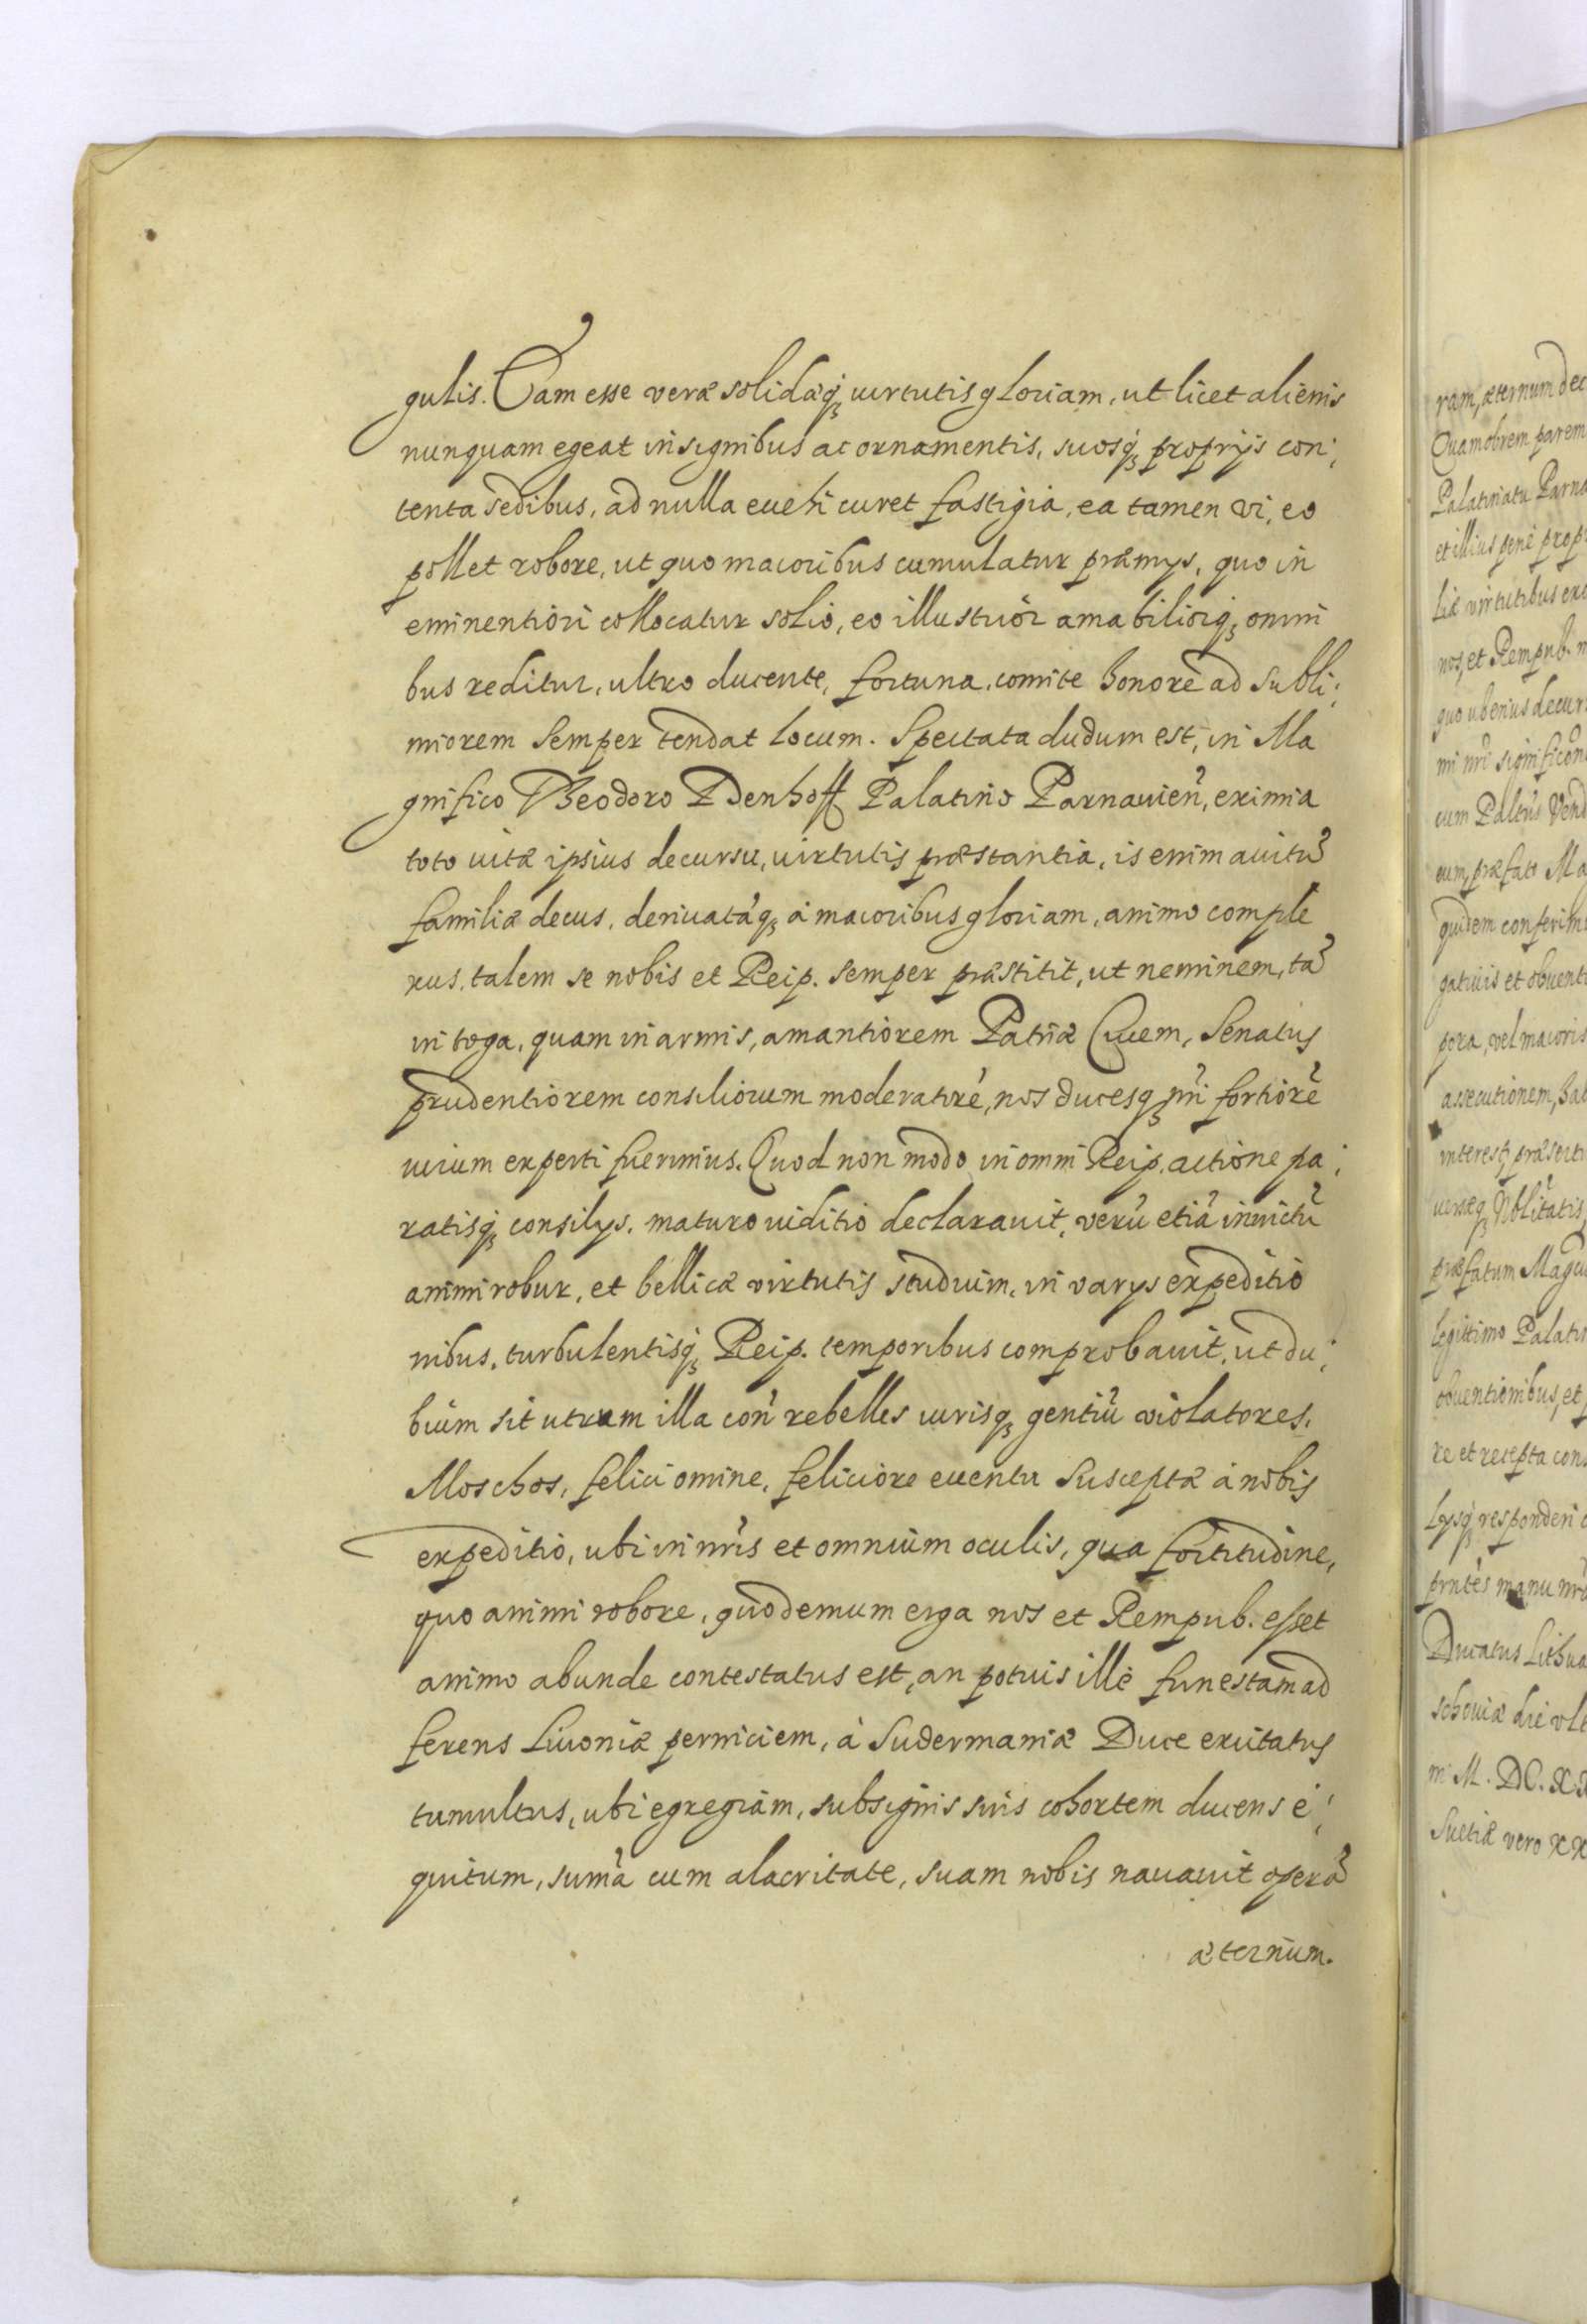 gulis. Eam esse veræ solidæq₃ uirtutis gloriam, ut licet alienis
nunquam egeat insignibus ac ornamentis, suosq₃ proprijs con:
tenta sedibus, ad nulla euehi curet fastigia, ea tamen vi, eo
pollet robore, ut quo maioribus cumulatur præmys, quo in
eminentiori collocatur solio, eo illustrior amabiliorq₃ omni
bus reditur, ultro ducente, fortuna, comite honore ad subli:
miorem semper tendat locum. Spectata dudum est, in Ma
gnifico Theodoro Denhoff Palatino Parnauien̄, eximia
toto uitæ ipsius decursu, uirtutis præstantia, is enim auitū
familiæ decus, deriuatāq₃ à maioribus gloriam, animo comple
xus, talem se nobis et Reip. semper præstitit, ut neminem, tā
in toga, quam in armis, amantiorem Patriæ Ciuem, Senatus
prudentiorem consiliorum moderatorē, nos ducesq₃ nr̄i fortiorē
uirum experti fuerimus. Quod non modo in omni Reip. actione pa:
ratisq₃ consilys, maturo iuditio declarauit, verū etiā inuictū
animi robur, et bellicæ virtutis studium, in varys expeditio
nibus, turbulentisq₃ Reip. temporibus comprobauit, ut du:
bium sit utrum illa con̄ rebelles iurisq₃ gentiū violatores,
Moschos, felici omine, feliciore euentu suscepta à nobis
expeditio, ubi in nr̄is et omnium oculis, qua fortitudine,
quo animi robore, quo demum erga nos et Rempub. esset
animo abunde contestatus est, an potuis ille funestam ad
ferens Liuoniæ perniciem, à Sudermaniæ Duce excitatus
tumultus, ubi egregiam, sub signis suis cohortem ducens e:
quitum, sumā cum alacritate, suam nobis nauauit operā
æternum.
ram, æternum dec
Quamobrem parem
Palatinatu Parna
et illius penè propr
liæ virtutibus exo
nos, et Rempub. m
quo uberius decur
mi nr̄i significōn
cum Palt̄us Vend
eum, præfato Ma
quidem conferim
gatiuis et obuenti
pora, vel maioris
assecutionem, hab
interest, præserti
uersæq₃ Nobl̄itatis
præfatum Mag̅cu
legittimo Palatin
obuentionibus, et
re et recepta cons
lysq₃ responderi
pnt̄es manu nr̄a
Ducatus Lithua
schouiæ die vlt
ni M. DC. XX
Suetiæ vero XX